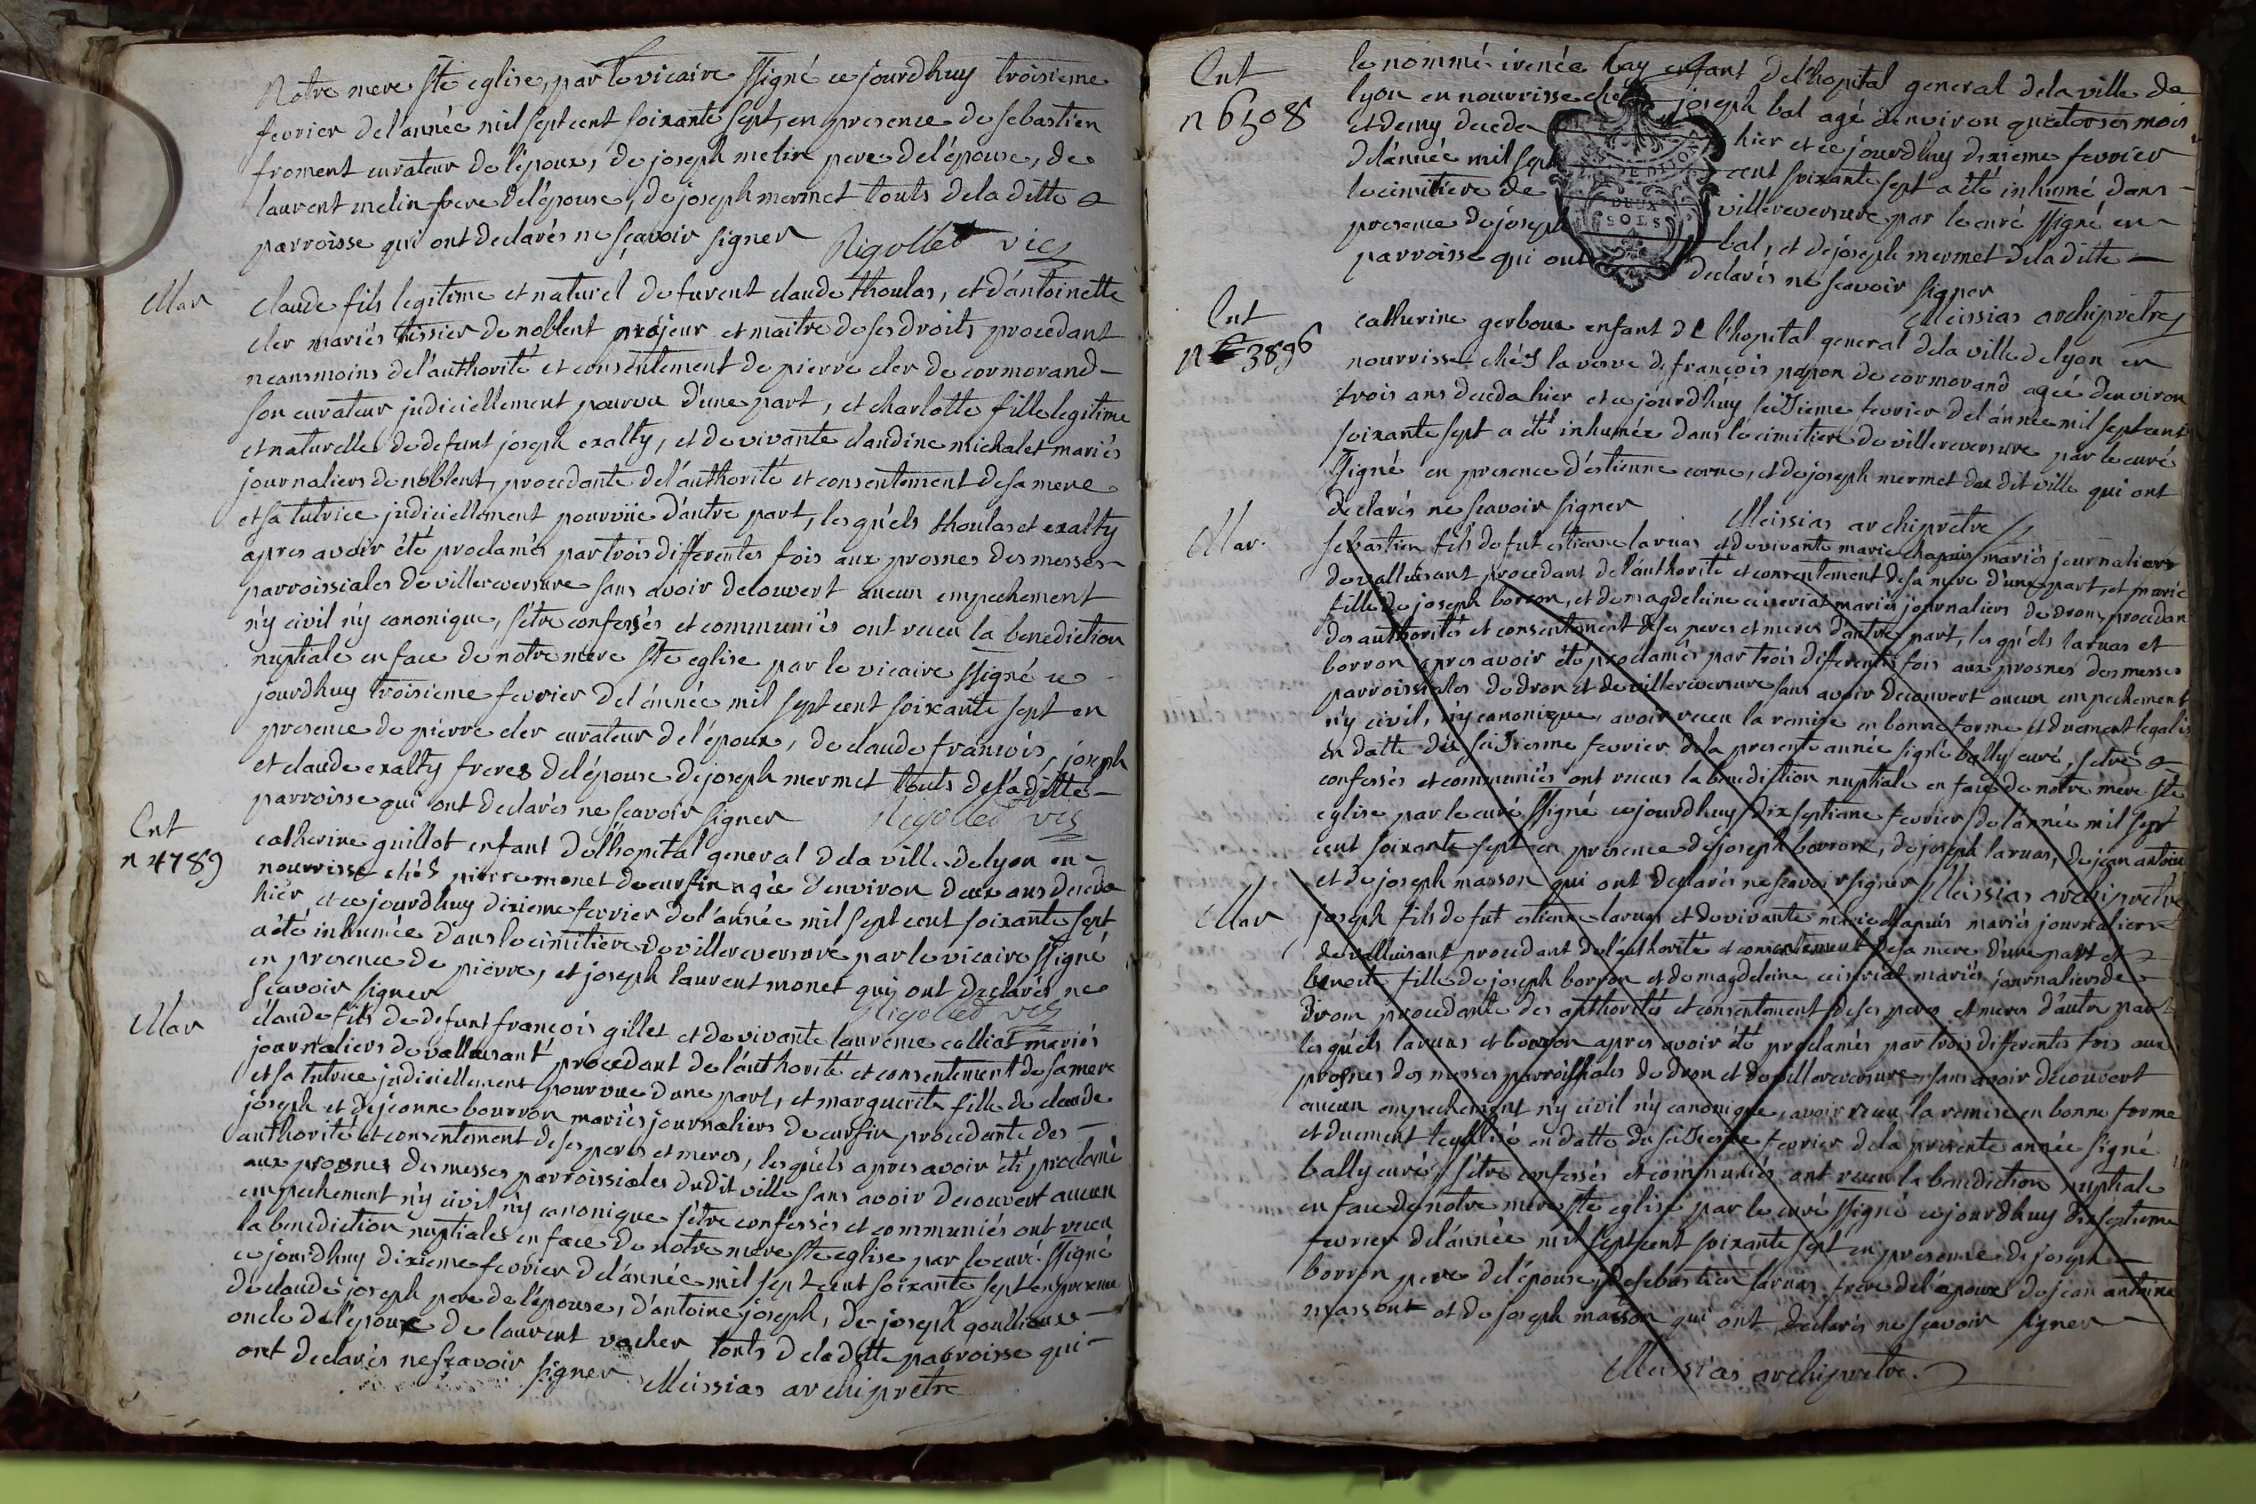 Notre mere Ste eglise, par le vicaire ssigné ce jourdhuy troisieme
fevrier de l'année mil sept cent soixante sept, en presence de sebastien
froment curateur de l'époux, de joseph melin pere de l'épouse, de
laurent melin frere de l'épouse, de joseph mermet touts de la ditte
parroisse qui ont declarés ne sçavoir signer Rigollet vic
Mar
claude fils legitime et naturel de furent claude thoulas, et d'antoinette
cler mariés tissier de noblent majeur et maitre de ses droits procedant
neansmoins de l'authorité et consentement de pierre cler de cormorand
son curateur judiciellement pourvu d'une part, et charlotte fille legitime
et naturelle de defunt joseph exalty, et de vivante claudine michalet mariés
journaliers de noblent, procedante de l'authorité et consentement de sa mere
et sa tutrice judiciellement pourvüe d'autre part, lesquels thoulas et exalty
apres avoir été proclamés par trois differentes fois aux prosnes des messes
parroissiales de villereversure sans avoir decouvert aucun empechement
n'y civil n'y canonique, s'étre confessés et communiés ont receu la benediction
nuptiale en face de notre mere Ste eglise par le vicaire ssigné ce
jourdhuy troisieme fevrier de l'année mil sept cent soixante sept en
presence de pierre cler curateur de l'époux, de claude francois, joseph
et claude exalty freres de l'épouse de joseph mermet touts de la ditte
parroisse qui ont declarés ne scavoir signer Rigollet vic
Ent
n 4789
catherine guillot enfant de l'hopital general de la ville de lyon en
nourrisse chés pierre monet de curfin agée d'environ deux ans deceda
hier, et ce jourdhuy dixieme fevrier de l'année mil sept cent soixante sept
a été inhumée dans le cimitiere de villereversure par le vicaire ssigné
en presence de pierre, et joseph laurent monet qui ont declarés ne
scavoir signer Rigollet vic
Mar
claude fils de defunt françois gillet et de vivante laurence calliat mariés
journaliers de valleusant procedant de l'authorité et consentement de sa mere
et sa tutrice judiciellement pourvue d'une part, et marguerite fille de claude
joseph et de jeanne bourron mariés journaliers de curfin procedante des
authorité et consentement de ses peres et meres, lesquels apres avoir été proclamé
aux prosnes des messes parroissiales dudit ville sans avoir decouvert aucun
empechement n'y civil n'y canonique s'étre confessés et communiés ont receu
la benediction nuptiales en face de notre mere Ste eglise par le curé ssigné
ce jourdhuy dixieme fevrier de l'année mil sept cent soixante sept en presence
de claude joseph pere de l'épouse, d'antoine joseph, de joseph
oncle de l'époux de laurent vacher touts de la ditte parroisse qui
ont declarés ne scavoir signer Meissias archiprétre
Ent
n 6508
le nommé irenée hay enfant de l'hopital general de la ville de
lyon en nourrisse chés joseph bal agé d'environ quatorses mois
et demy deceda hier et ce jourdhuy dixieme fevrier
de l'année mil sept cent soixante sept a été inhumé dans
le cimitiere de villereversure par le curé ssigné en
presence de joseph bal, et de joseph mermet de la ditte
parroisse qui ont declarés ne scavoir signer
Meissias archiprétre
DEUX
SOLS
Ent
n 3896
catherine gerboux enfant de l'hopital general de la ville de lyon en
nourrisse chés la veuve de françois papon de cormorand agée d'environ
trois ans deceda hier et ce jourdhuy seisieme fevrier de l'année mil sept cent
soixante sept a été inhumée dans le cimitiere de villereversure par le curé
ssigné en presence d'estienne corne, et de joseph mermet du dit ville qui ont
declarés ne scavoir signer Meissias archiprétre
Mar.
sebastien fils de fut estienne laruas et de vivante marie chapuis mariés journaliers
de valleusant procedant de l'authorité et consentement de sa mere d'une part, et marie
fille de joseph borron, et de magdeleine ciseriat mariés journaliers de drom procedan
des authorités et consentement de ses peres et meres d'autre part, lesquels laruas et
borron apres avoir été proclamés par trois differentes fois aux prosnes des messes
parroissiales de drom et de villereversure sans avoir decouvert aucun empechement
n'y civil, n'y canonique, avoir receu la remise en bonne forme et duement legalis
en datte du seisieme fevrier de la presente année signé bally curé, s'etre
confessés et communiés ont receus la benediction nuptiale en face de notre mere Ste
eglise par le curé ssigné ce jourdhuy dix septieme fevrier de l'année mil sept
cent soixante sept en presence de joseph borron, de joseph laruas, de jean antoine
et de joseph masson qui ont declarés ne scavoir signer Meissias archiprétre
Mar
joseph fils de fut estienne laruas et de vivante marie chapuis mariés journaliers
de valleusant procedant de l'authorité et consentement de sa mere d'une part et
benoite fille de joseph borron et de magdeleine ciseriat mariés journaliers de
drom procedante des authorités et consentement de ses peres et meres d'autre part
lesquels laruas et borron apres avoir été proclamés par trois differentes fois aux
prosnes des messes parroissiales de drom et de villereversure sans avoir decouvert
aucun empechement n'y civil n'y canonique, avoir receu la remise en bonne forme
et duement legalisé en datte du seisieme fevrier de la presente année signé
bally curé, s'étre confessés et communiés ont receu la benediction nuptiale
en face de notre mere Ste eglise par le curé ssigné ce jourdhuy dix septieme
fevrier de l'année mil sept cent soixante sept en presence de joseph
borron pere de l'épouse, de sebastien laruas frere de l'époux de jean antoine
masson et de joseph masson qui ont declarés ne scavoir signer
Meissias archiprétre.